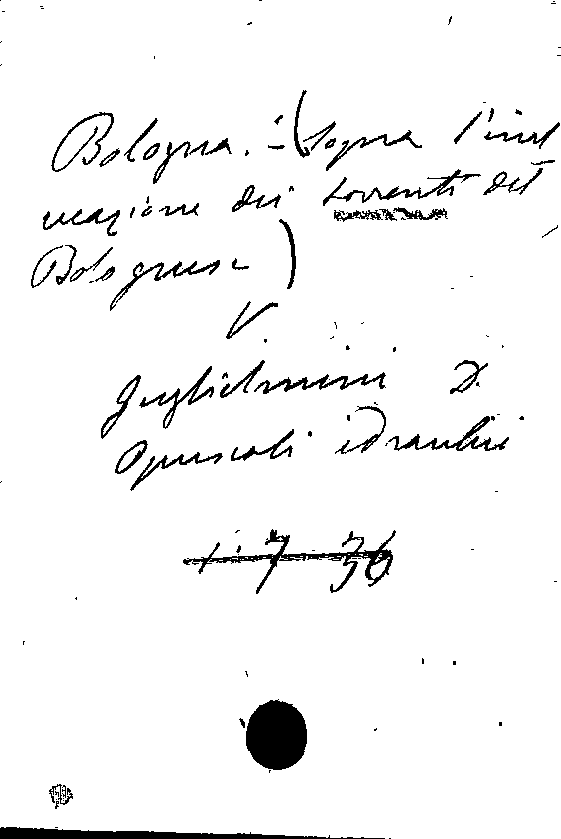 Bologna. - (Sopra l'inal
veazione dei torrenti del
Bolognese)
V
Guglielmini D.
Opuscoli idraulici
1. 7 36